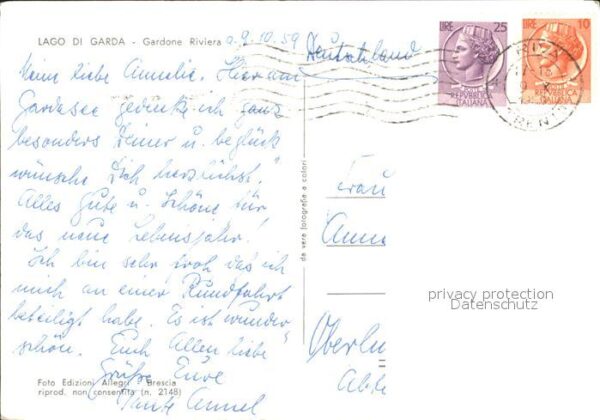 LAGO DI GARDA - Gardone Riviera
a. 9.10.59
Deutschland
LIRE 25
REPVBBLICA
ITALIANA
LIRE 10
REPVBBLICA
ITALIANA
Meine liebe Annelie. Hier am
Gardasee gedenke ich ganz
besonders Deiner u. beglück
wünsche Dich herzlichst.
Alles Gute u. Schöne für
das neue Lebensjahr!
Ich bin sehr froh das ich
mich an einer Rundfahrt
beteiligt habe. Es ist wunder
schön. Euch Allen liebe
Grüße Eure
Tante Annel
da vera fotografia a colori
Frau
Anne
Oberlu
privacy protection
Datenschutz
Foto Edizioni Allegri - Brescia
riprod. non consentita (n. 2148)